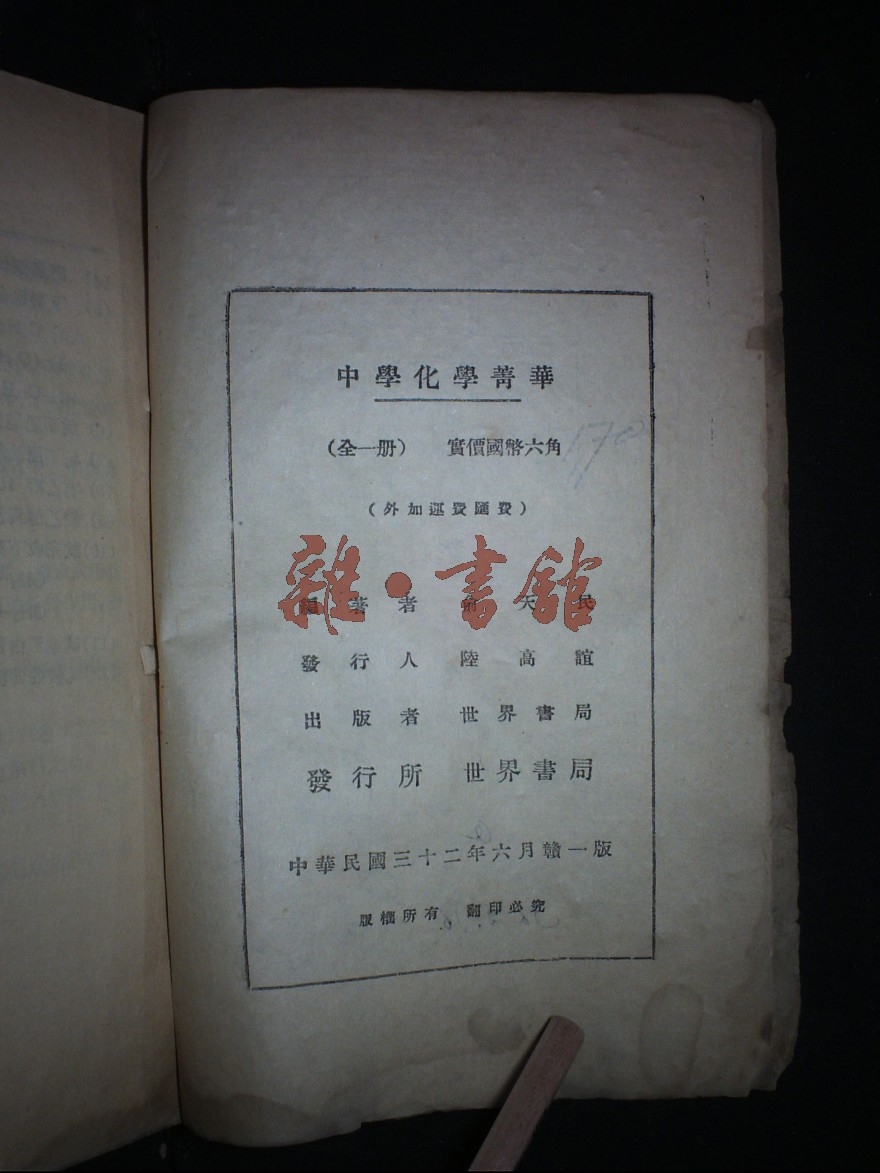 中學化學菁華
(全一册) 實價國幣六角
170
(外加運費匯費)
雜·書館
編著者 俞天民
發行人 陸高誼
出版者 世界書局
發行所 世界書局
中華民國三十二年六月贛一版
版權所有 翻印必究